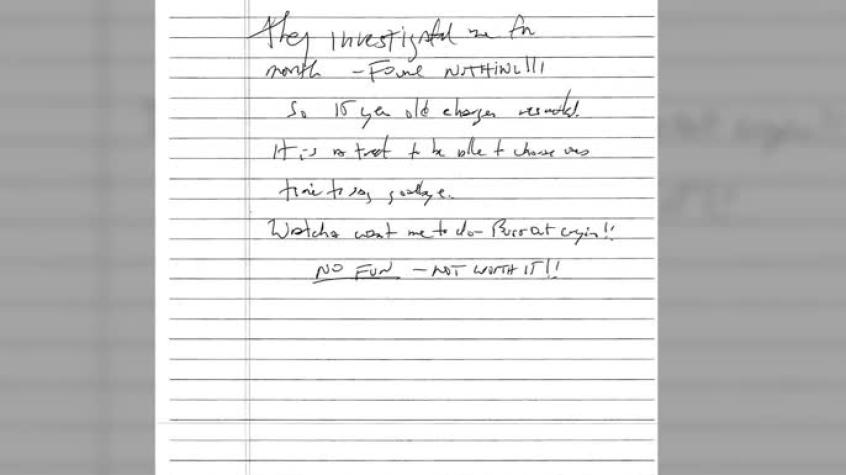 They investigated me for
month – Found NOTHING!!!
So 15 year old charges
It is a treat to be able to choose ones
time to say goodbye.
Watcha want me to do – Burst out cryin!!
NO FUN – NOT WORTH IT!!